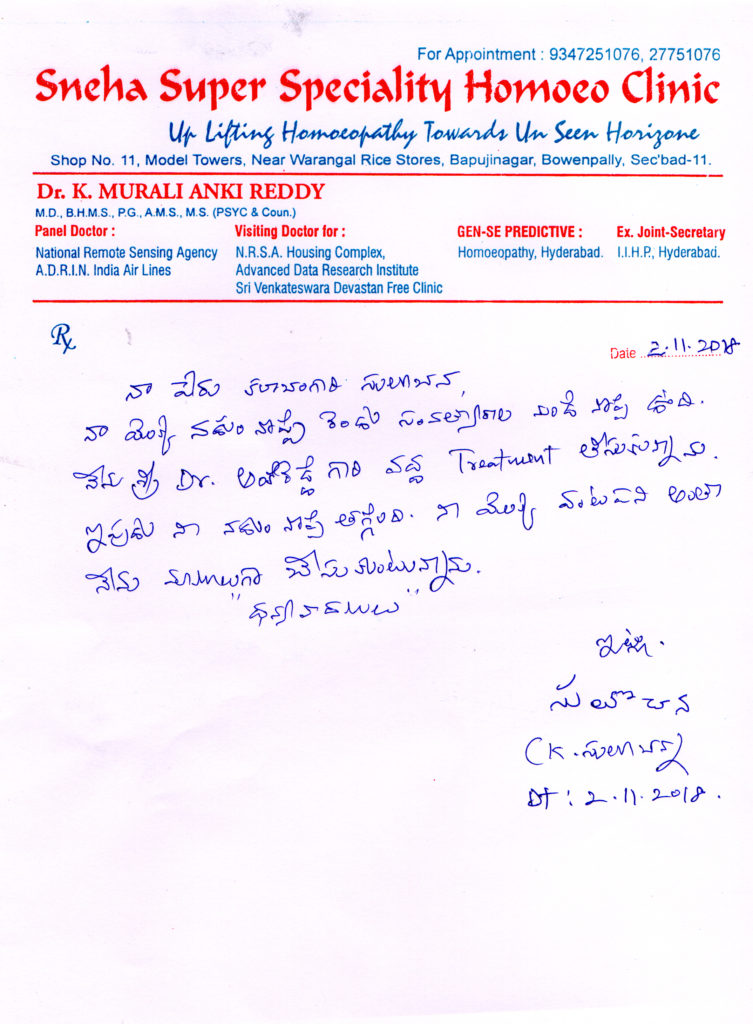 For Appointment : 9347251076, 27751076
Sneha Super Speciality Homoeo Clinic
Up Lifting Homoeopathy Towards Un Seen Horizone
Shop No. 11, Model Towers, Near Warangal Rice Stores, Bapujinagar, Bowenpally, Sec'bad-11.
Dr. K. MURALI ANKI REDDY
M.D., B.H.M.S., P.G., A.M.S., M.S. (PSYC & Coun.)
Panel Doctor : Visiting Doctor for : GEN-SE PREDICTIVE : Ex. Joint-Secretary
National Remote Sensing Agency N.R.S.A. Housing Complex, Homoeopathy, Hyderabad. I.I.H.P., Hyderabad.
A.D.R.I.N. India Air Lines Advanced Data Research Institute
Sri Venkateswara Devastan Free Clinic
Rx
Date 2.11.2018
నా పేరు సులోచన,
నా యొక్క నడుం నొప్పి రెండు సంవత్సరాల నుండి నొప్పి ఉంది.
నేను శ్రీ Dr. గారి వద్ద Treatment తీసుకున్నాను.
ఇపుడు నా నడుం నొప్పి తగ్గింది. నా యొక్క వంటపని అంతా
నేను మామూలుగా చేసుకుంటున్నాను.
"ధన్యవాదములు"
ఇట్లు.
సులోచన
(K. సులోచన)
Dt : 2.11.2018.